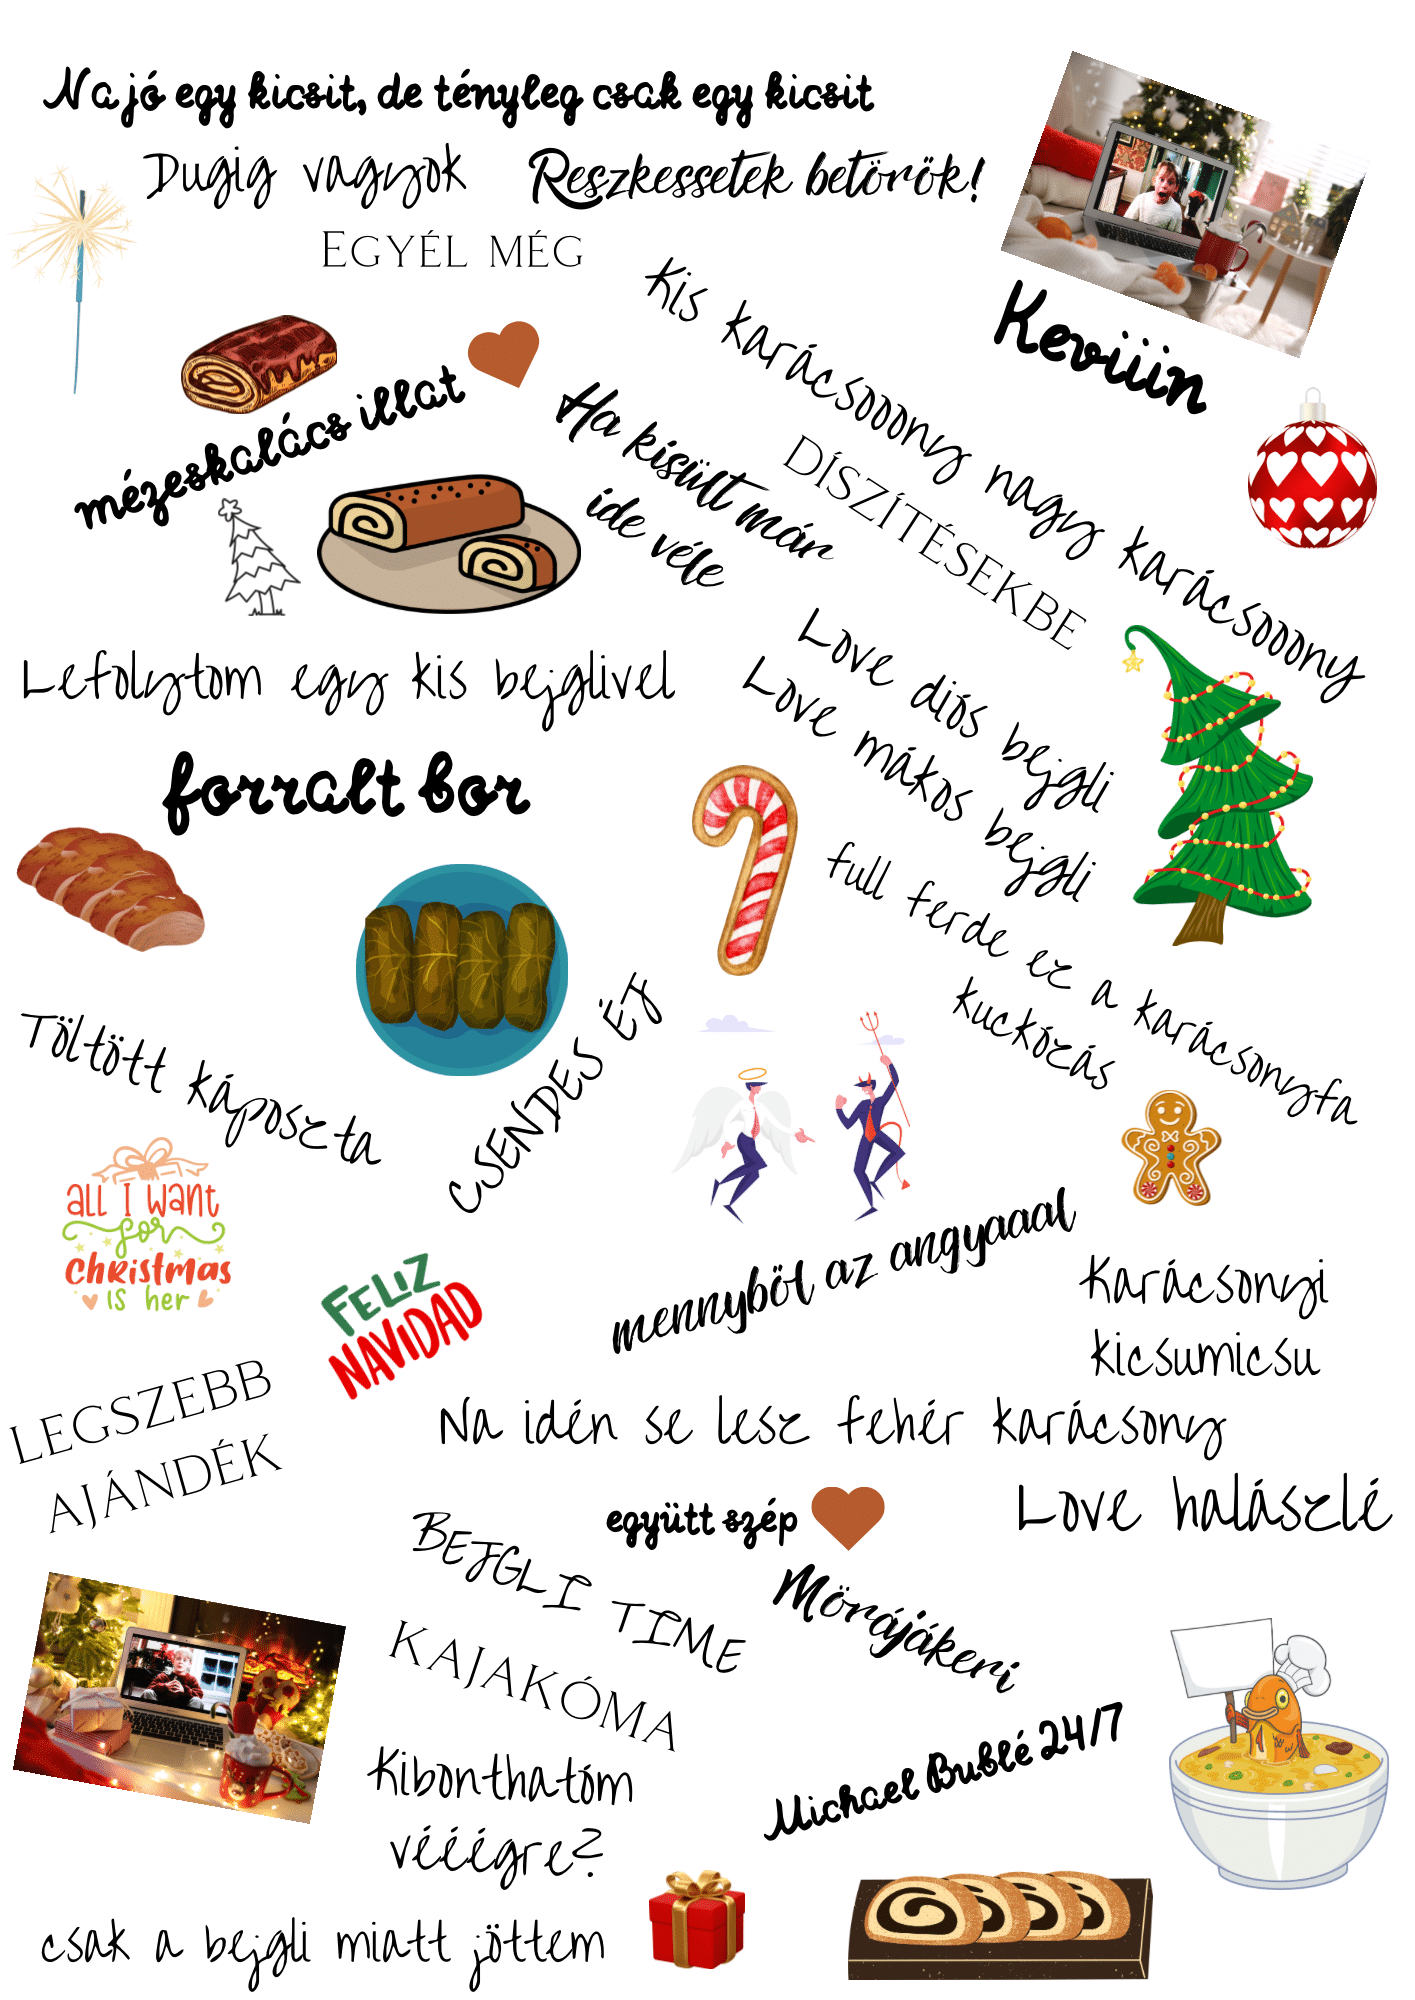 Na jó egy kicsit, de tényleg csak egy kicsit
Dugig vagyok
Reszkessetek betörők!
EGYÉL MÉG
Keviiin
Kis karácsooony nagy karácsooony
mézeskalács illat
Ha kisült már
ide véle
DÍSZÍTÉSEKBE
Lefolytom egy kis bejglivel
Love diós bejgli
Love mákos bejgli
forralt bor
full ferde ez a karácsonyfa
kuckózás
Töltött káposzta
CSENDES ÉJ
all I want
for
christmas
is her
FELIZ
NAVIDAD
mennyből az angyaaal
Karácsonyi
kicsumicsu
LEGSZEBB
AJÁNDÉK
Na idén se lesz fehér karácsony
együtt szép
Love halászlé
BEJGLI TIME
Mörájákeri
KAJAKÓMA
Michael Bublé 24/7
Kibonthatóm
vééégre?
csak a bejgli miatt jöttem